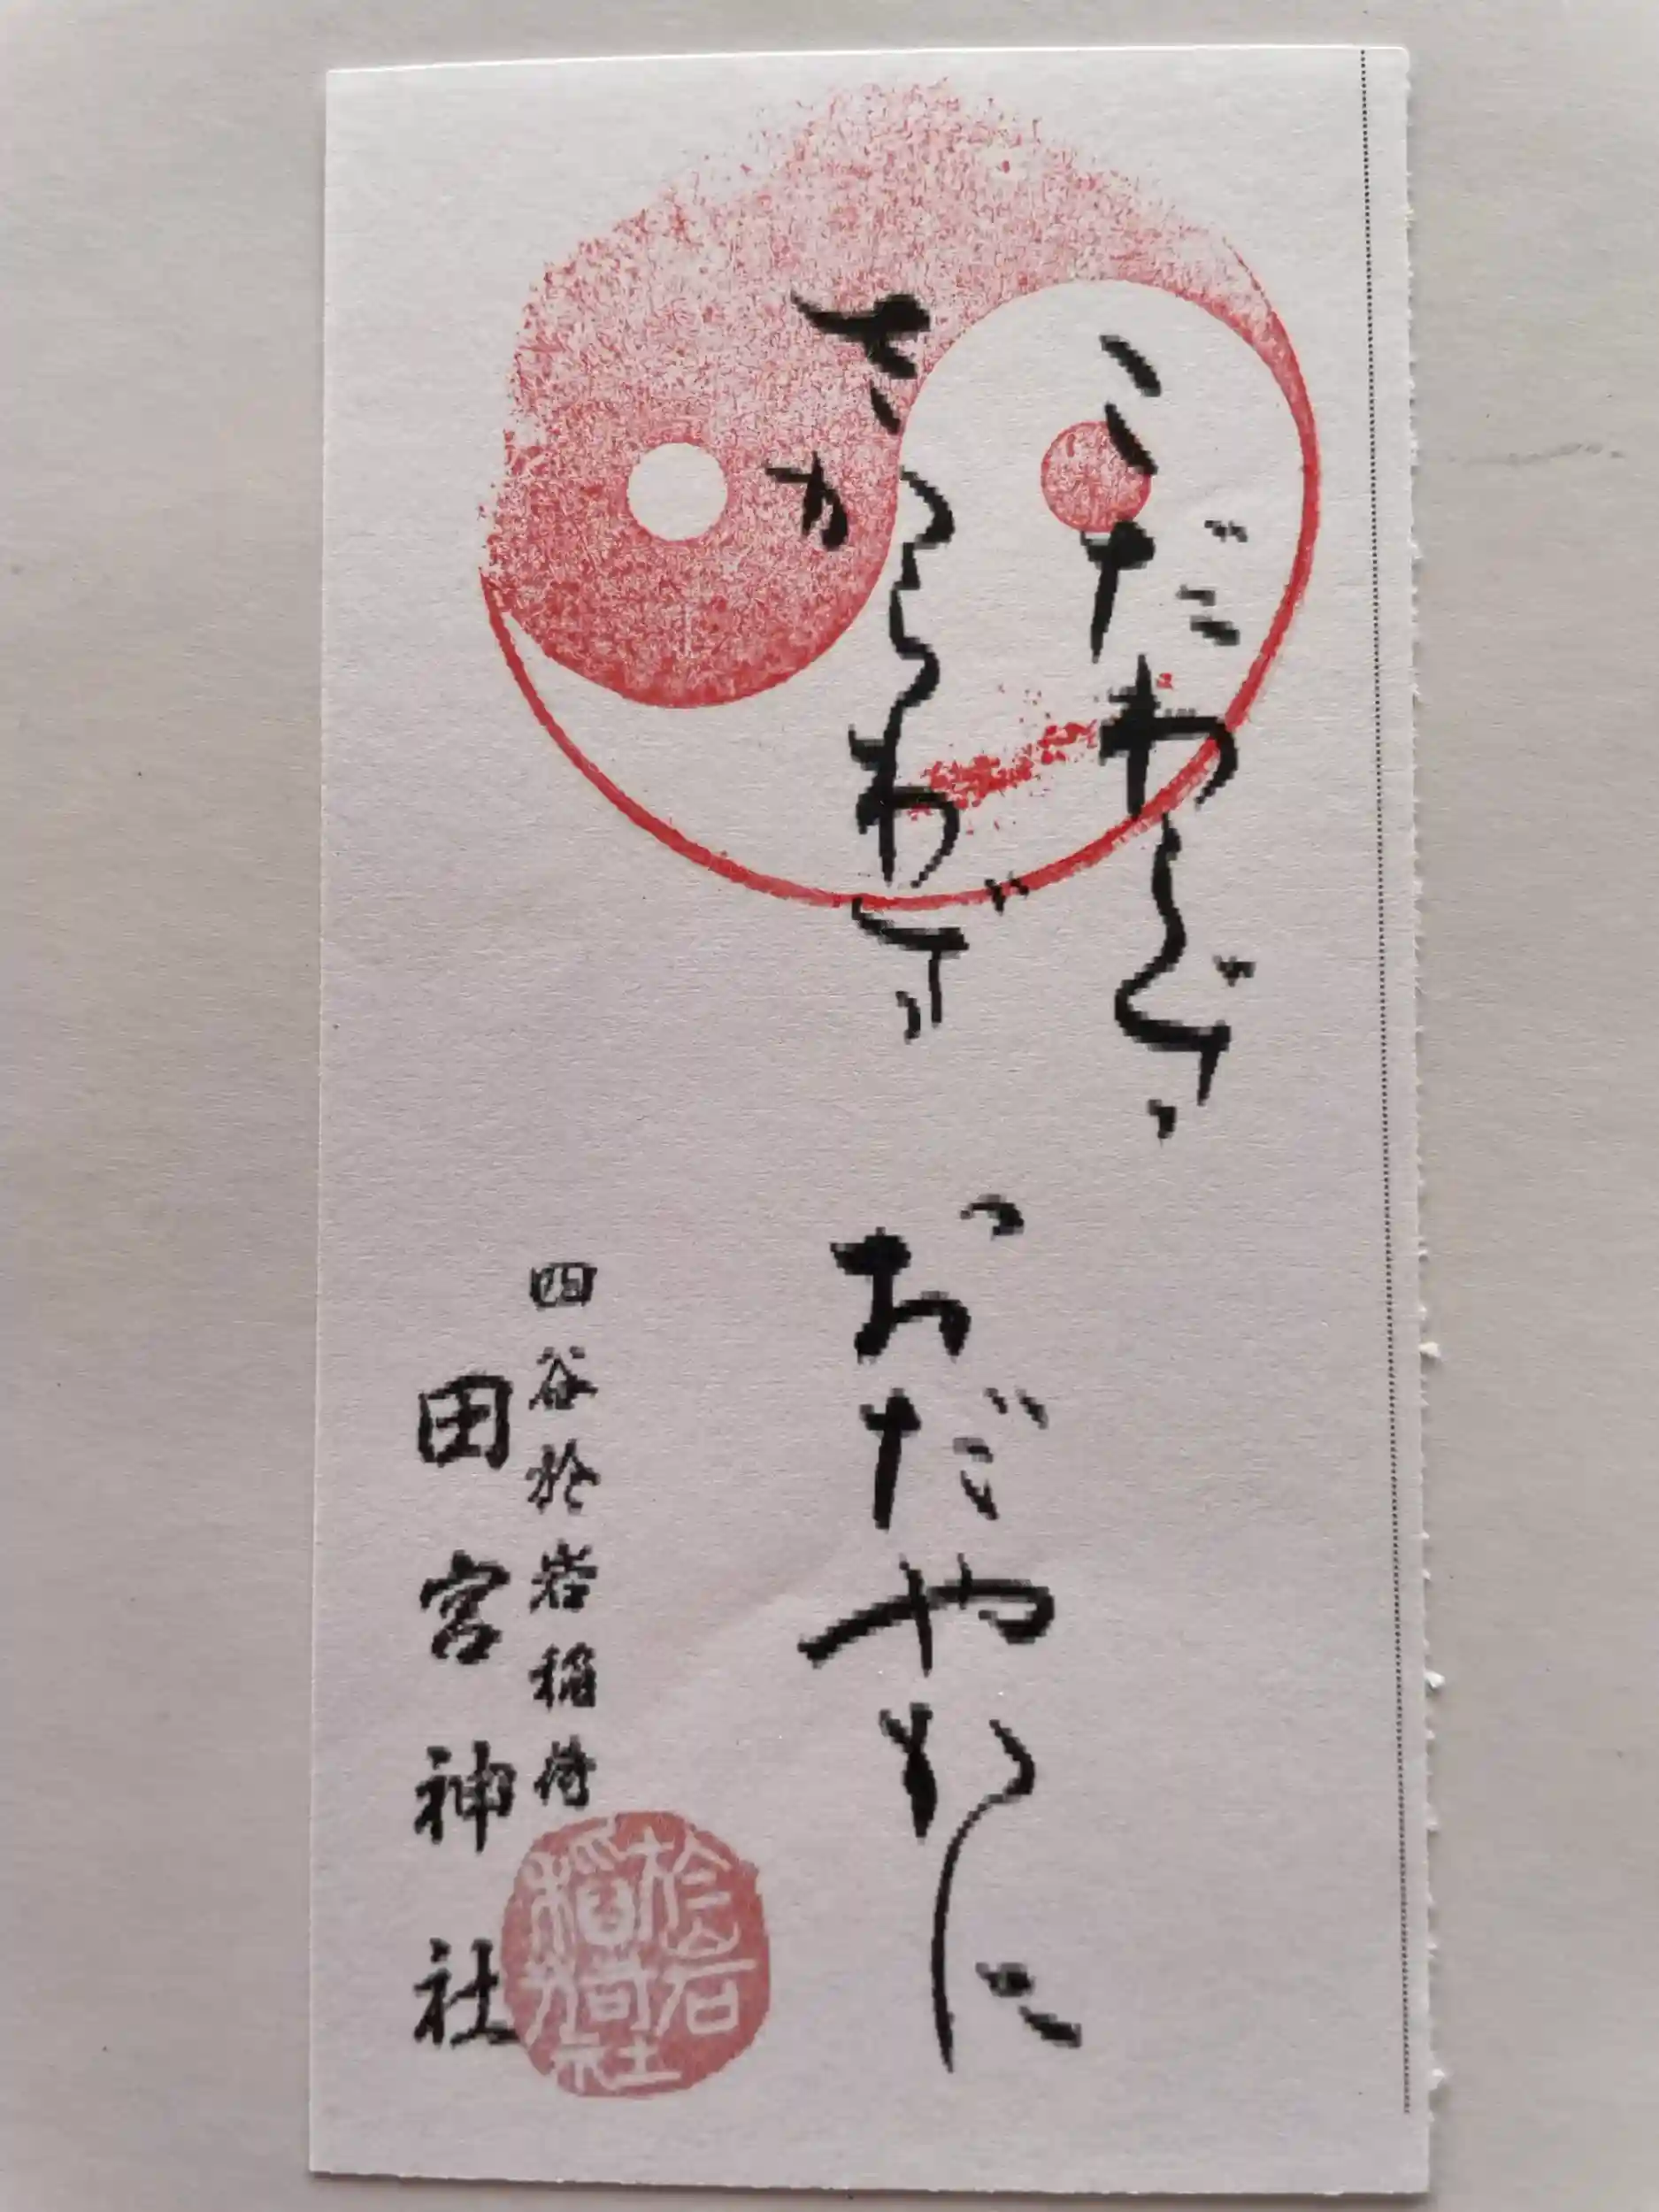 こだわらず、
さからわず、
おだやかに
四谷於岩稲荷
田宮神社
於岩
稲荷
社